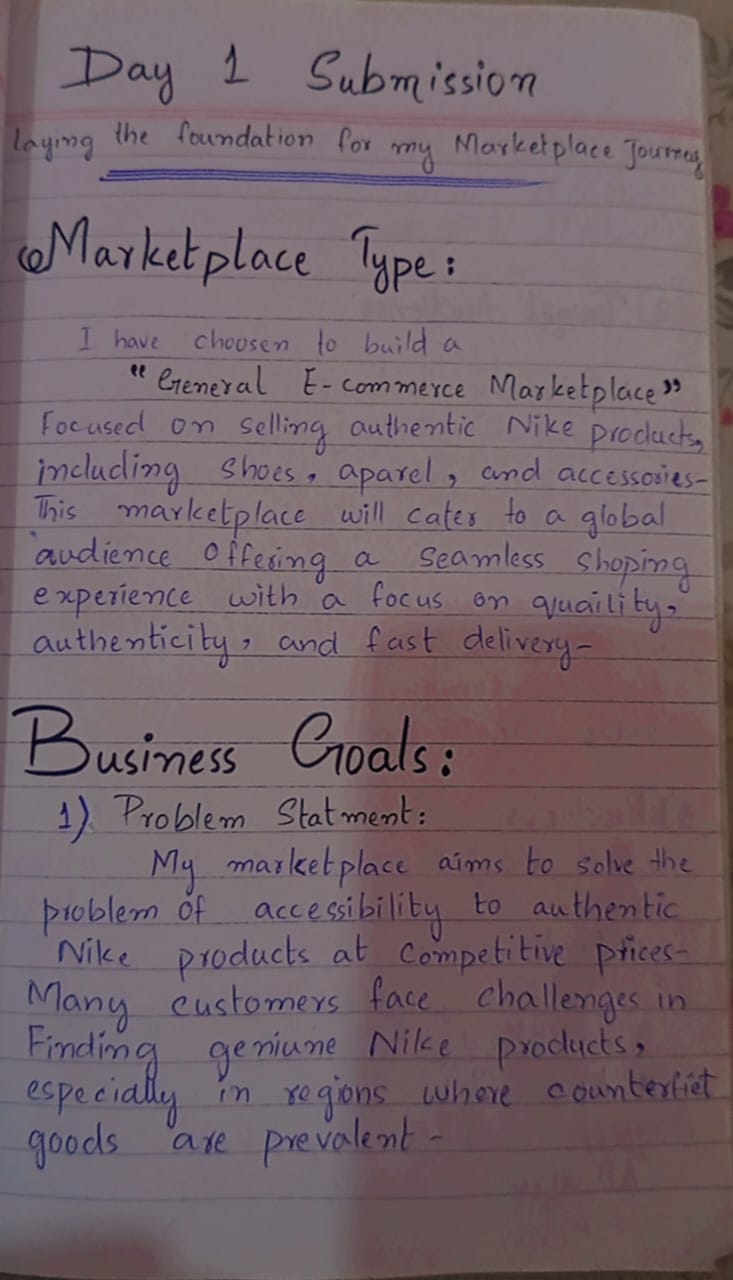 Day 1 Submission
laying the foundation for my Marketplace Journey
Marketplace Type:
I have choosen to build a
"General E-commerce Marketplace"
Focused on selling authentic Nike products,
including shoes, aparel, and accessories-
This marketplace will cater to a global
audience offering a seamless shoping
experience with a focus on quaility,
authenticity, and fast delivery-
Business Goals:
1) Problem Statment:
My marketplace aims to solve the
problem of accessibility to authentic
Nike products at competitive prices-
Many customers face challenges in
Finding geniune Nike products,
especially in regions where counterfiet
goods are prevalent-